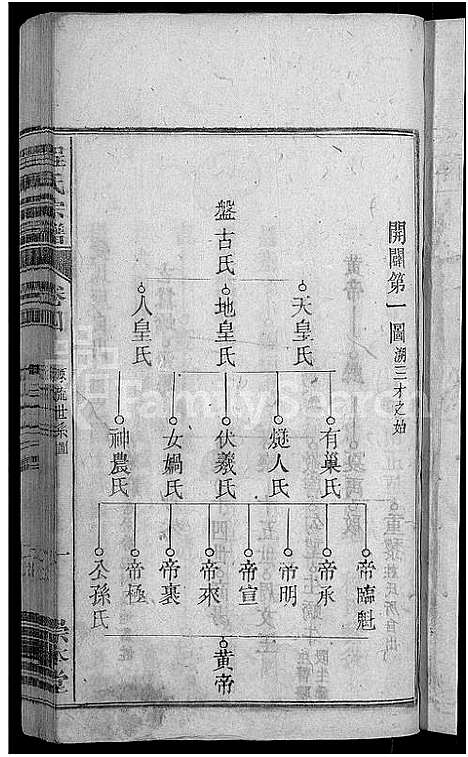 開闢第一圖 溯三才之始
盤古氏
天皇氏
地皇氏
人皇氏
有巢氏
燧人氏
伏羲氏
女媧氏
神農氏
帝臨魁
帝承
帝明
帝宣
帝來
帝裏
帝極
公孫氏
黃帝
程氏宗譜
卷四
源流世系圖
一
FamilySearch